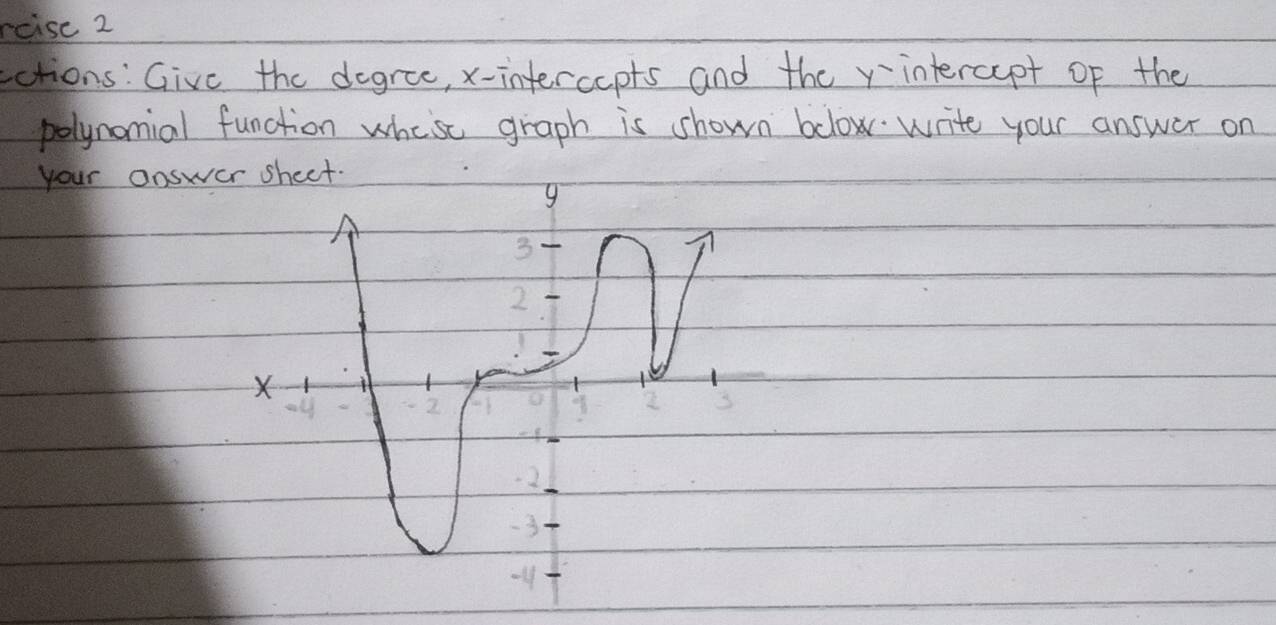 rcise 2
ctions: Give the degree, x-intercepts and the y-intercept of the
polynomial function whose graph is shown below. Write your answer on
your answer sheet.
y
3
2
1
X -4 -2 -1 0 1 2 3
-1
-2
-3
-4